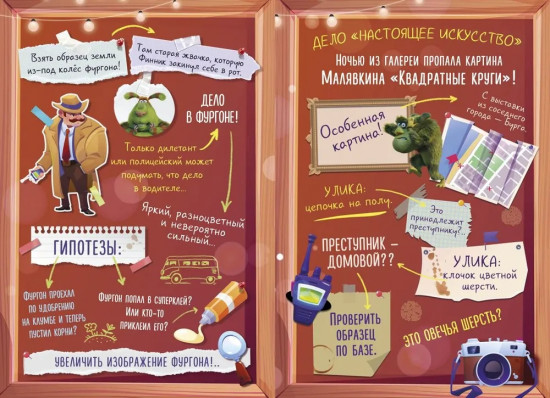 Взять образец земли
из-под колёс фургона!
Там старая жвачка, которую
Финник закинул себе в рот.
Дело
в фургоне!
Только дилетант
или полицейский может
подумать, что дело
в водителе...
Яркий, разноцветный
и невероятно
сильный...
Гипотезы:
Фургон проехал
по удобрению
на клумбе и теперь
пустил корни?
Фургон попал в суперклей?
Или кто-то
приклеил его?
Увеличить изображение фургона!..
Дело «Настоящее искусство»
Ночью из галереи пропала картина
Малявкина «Квадратные круги»!
Особенная
картина!
С выставки
из соседнего
города — Бурга.
Улика:
цепочка на полу.
Это
принадлежит
преступнику?..
Преступник –
домовой??
Улика:
клочок цветной
шерсти.
Проверить
образец
по базе.
Это овечья шерсть?